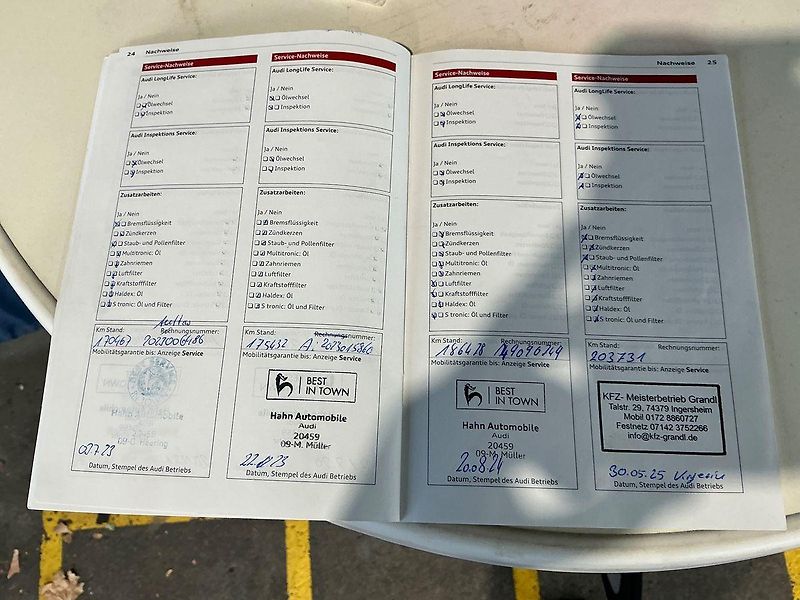 24 Nachweise
Service-Nachweise
Audi LongLife Service:
Ja / Nein
Ölwechsel
Inspektion
Audi Inspektions Service:
Ja / Nein
Ölwechsel
Inspektion
Zusatzarbeiten:
Ja / Nein
Bremsflüssigkeit
Zündkerzen
Staub- und Pollenfilter
Multitronic: Öl
Zahnriemen
Luftfilter
Kraftstofffilter
Haldex: Öl
S tronic: Öl und Filter
Km Stand: Rechnungsnummer:
170467
Mobilitätsgarantie bis: Anzeige Service
Datum, Stempel des Audi Betriebs
Service-Nachweise
Audi LongLife Service:
Ja / Nein
Ölwechsel
Inspektion
Audi Inspektions Service:
Ja / Nein
Ölwechsel
Inspektion
Zusatzarbeiten:
Ja / Nein
Bremsflüssigkeit
Zündkerzen
Staub- und Pollenfilter
Multitronic: Öl
Zahnriemen
Luftfilter
Kraftstofffilter
Haldex: Öl
S tronic: Öl und Filter
Km Stand: Rechnungsnummer:
175432
Mobilitätsgarantie bis: Anzeige Service
BEST
IN TOWN
Hahn Automobile
Audi
20459
09-M. Müller
Datum, Stempel des Audi Betriebs
Nachweise 25
Service-Nachweise
Audi LongLife Service:
Ja / Nein
Ölwechsel
Inspektion
Audi Inspektions Service:
Ja / Nein
Ölwechsel
Inspektion
Zusatzarbeiten:
Ja / Nein
Bremsflüssigkeit
Zündkerzen
Staub- und Pollenfilter
Multitronic: Öl
Zahnriemen
Luftfilter
Kraftstofffilter
Haldex: Öl
S tronic: Öl und Filter
Km Stand: Rechnungsnummer:
186478
Mobilitätsgarantie bis: Anzeige Service
BEST
IN TOWN
Hahn Automobile
Audi
20459
09-M. Müller
20.08.24
Datum, Stempel des Audi Betriebs
Service-Nachweise
Audi LongLife Service:
Ja / Nein
Ölwechsel
Inspektion
Audi Inspektions Service:
Ja / Nein
Ölwechsel
Inspektion
Zusatzarbeiten:
Ja / Nein
Bremsflüssigkeit
Zündkerzen
Staub- und Pollenfilter
Multitronic: Öl
Zahnriemen
Luftfilter
Kraftstofffilter
Haldex: Öl
S tronic: Öl und Filter
Km Stand: Rechnungsnummer:
203731
Mobilitätsgarantie bis: Anzeige Service
KFZ- Meisterbetrieb Grandl
Talstr. 29, 74379 Ingersheim
Mobil 0172 8860727
Festnetz 07142 3752266
info@kfz-grandl.de
30.05.25
Datum, Stempel des Audi Betriebs